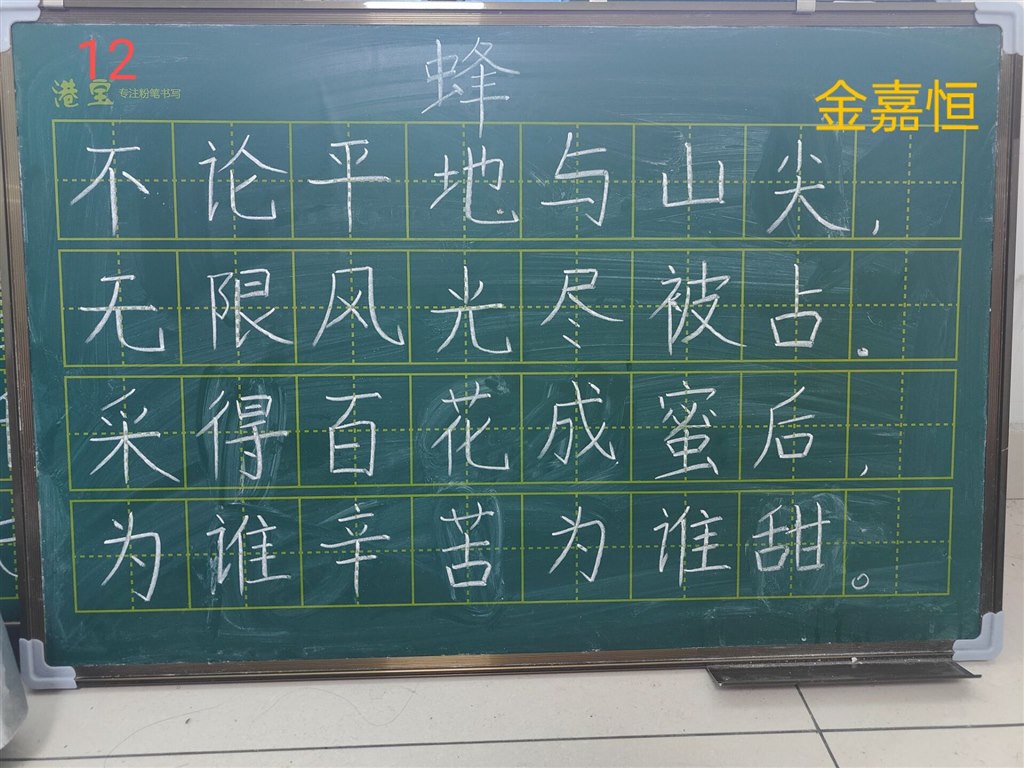 12
港宝 专注粉笔书写
蜂
金嘉恒
不论平地与山尖,
无限风光尽被占。
采得百花成蜜后,
为谁辛苦为谁甜。